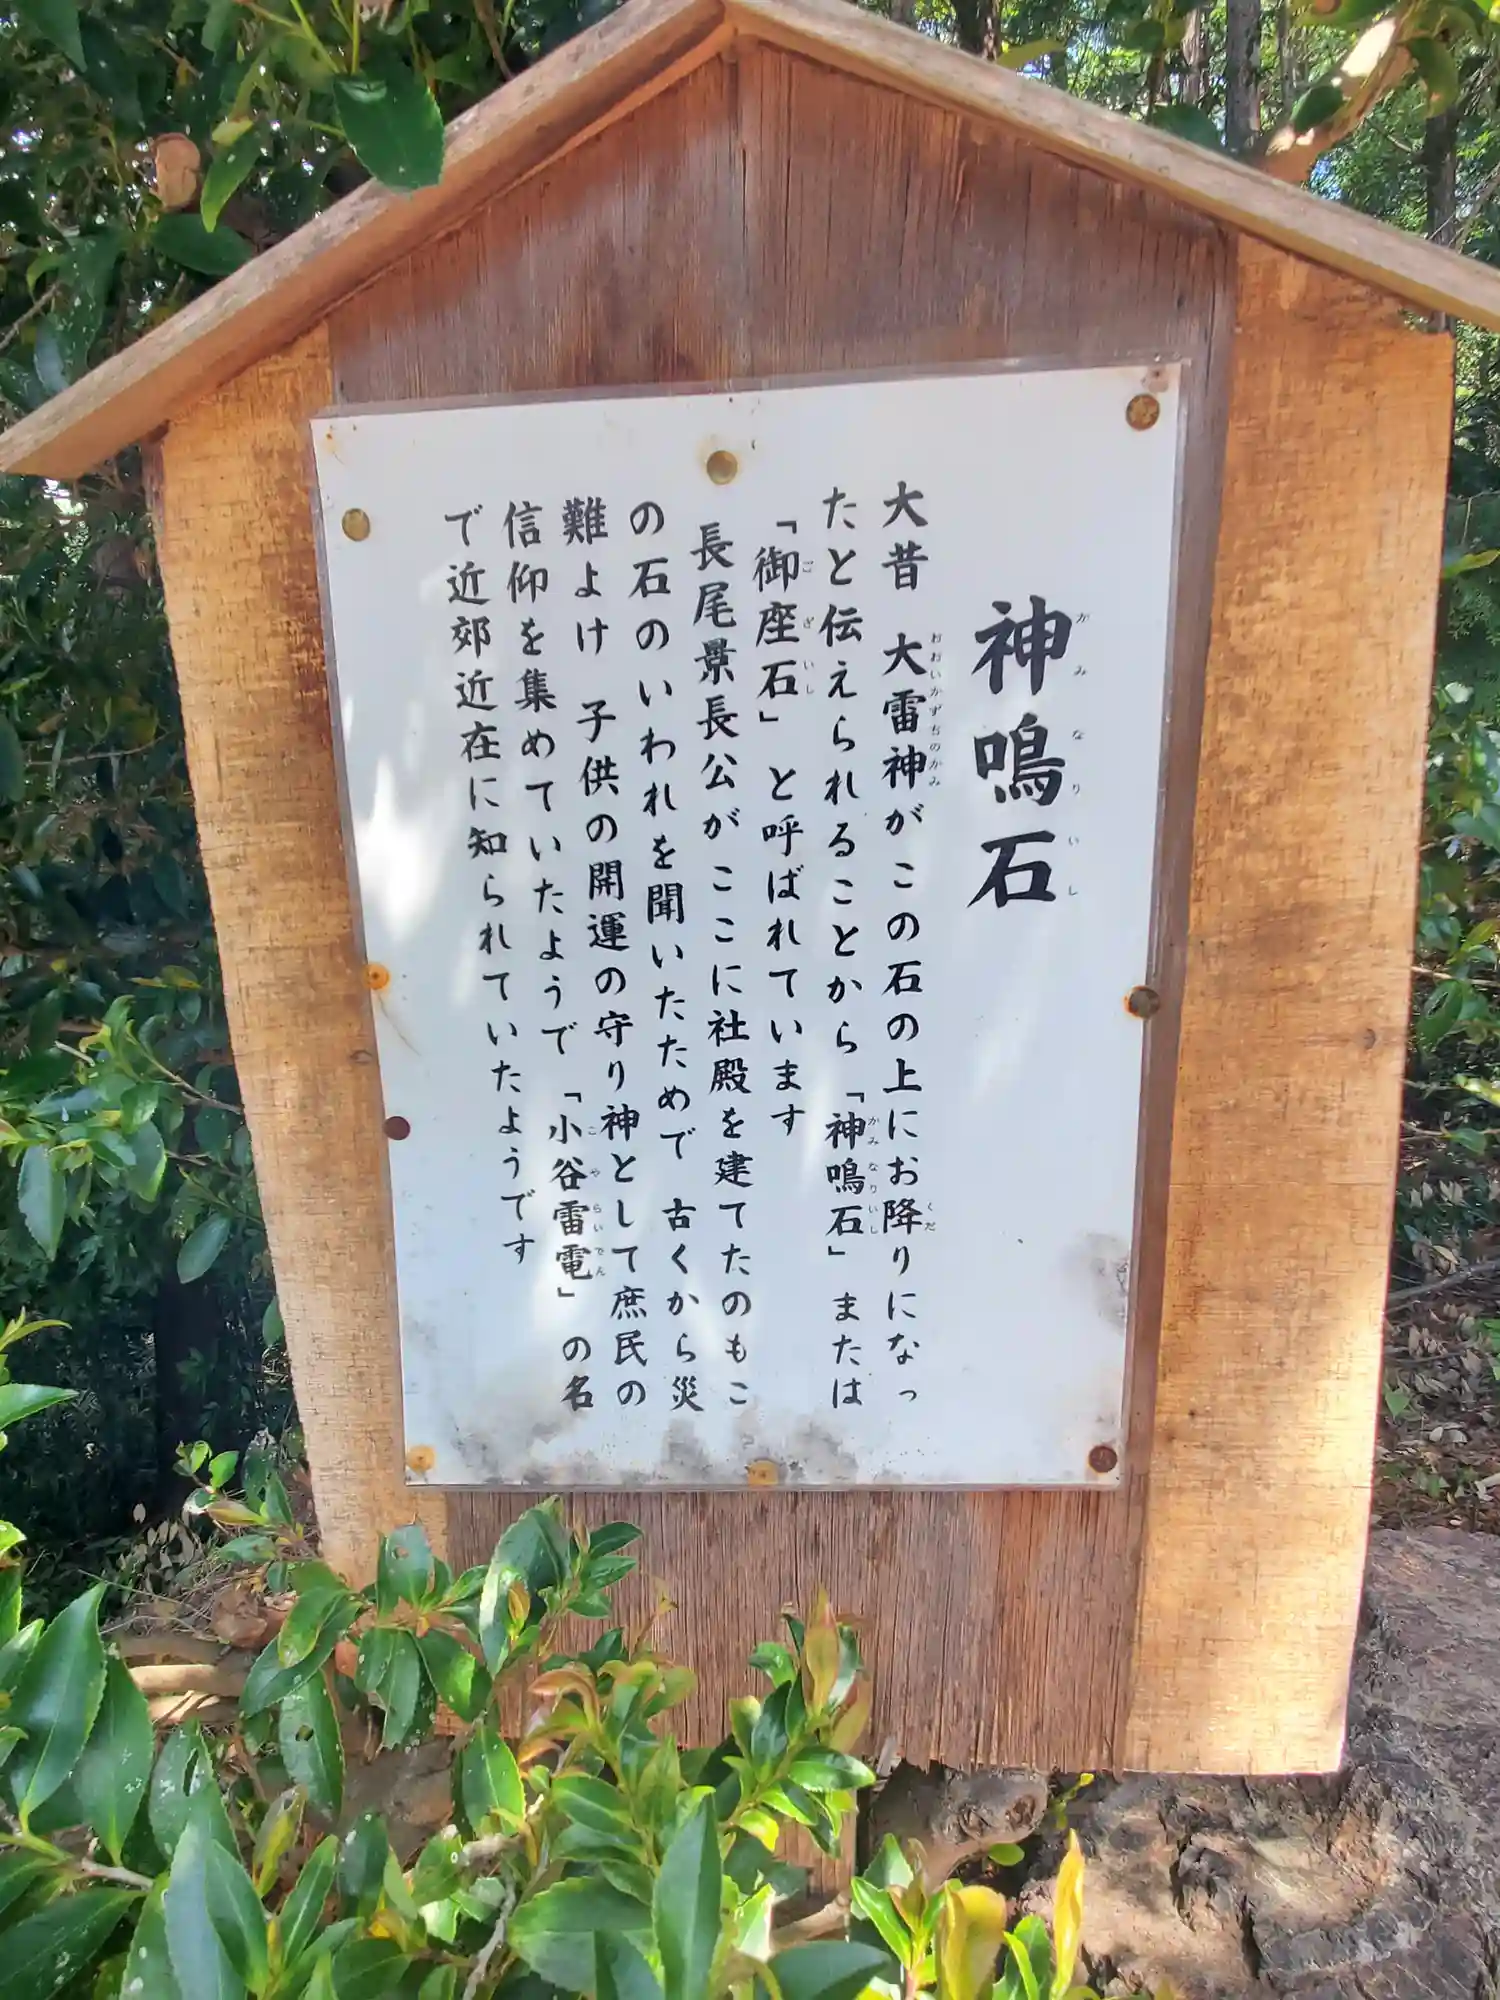 神鳴石
かみなりいし
大昔　大雷神がこの石の上にお降りになっ
おおいかずちのかみ
くだ
たと伝えられることから「神鳴石」または
かみなりいし
「御座石」と呼ばれています
ございし
長尾景長公がここに社殿を建てたのもこ
の石のいわれを聞いたためで　古くから災
難よけ　子供の開運の守り神として庶民の
信仰を集めていたようで「小谷雷電」の名
こやらいでん
で近郊近在に知られていたようです